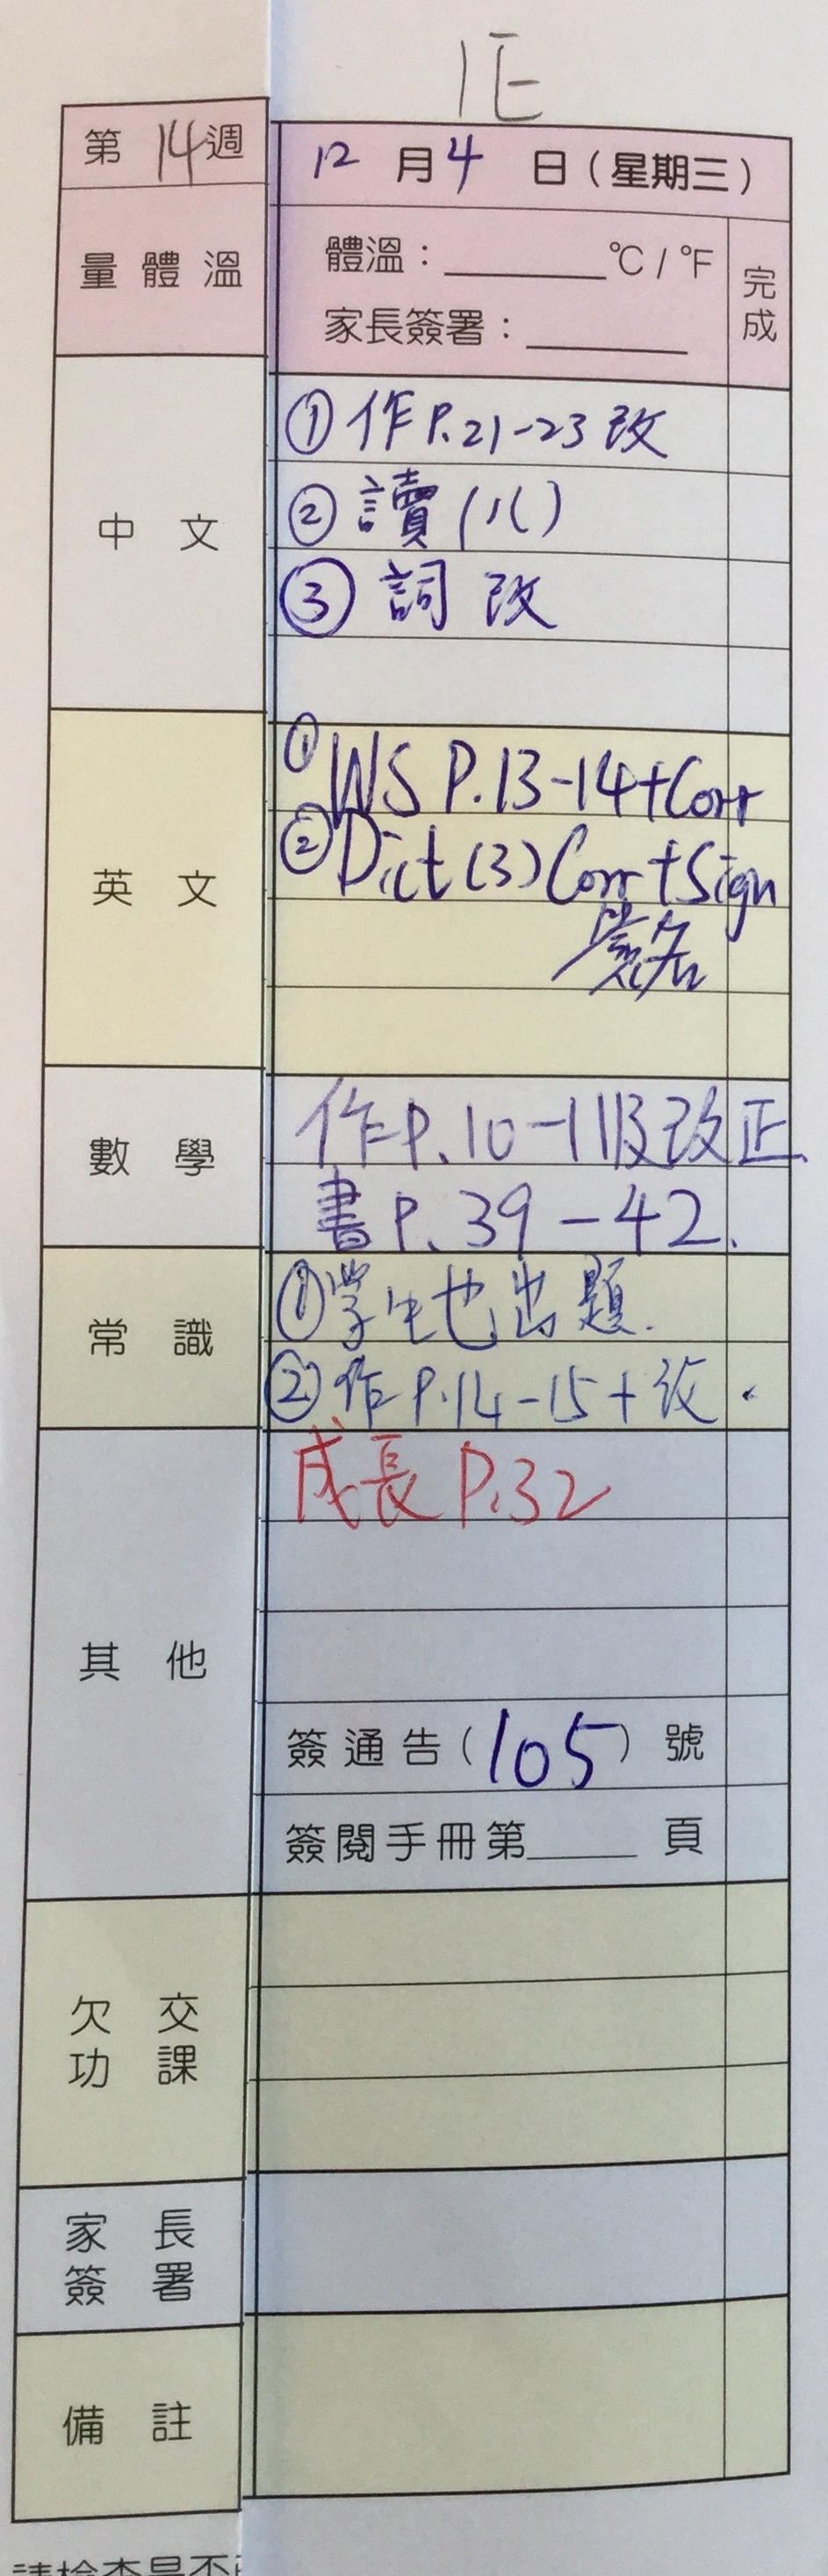 1E
第 14 週
12 月 4 日（星期三）
量體溫
體溫：______℃/℉
家長簽署：______
完成
中文
① 作P.21-23改
② 讀(八)
③ 詞改
英文
① WS P.13-14+Corr
② Dict(3) Corr+Sign
簽名
數學
作P.10-11及改正.
書P.39-42.
常識
① 學生也出題.
② 作P.14-15+改.
其他
成長P.32
簽通告(105)號
簽閱手冊第____頁
欠交功課
家長簽署
備註